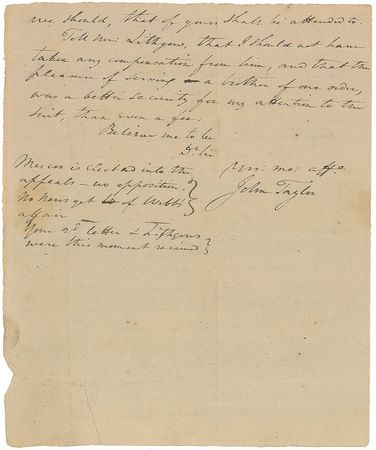 we should, that of yours shall be attended to.
Tell Mr: Lithgow, that I should not have
taken any compensation from him, and that the
pleasure of serving a brother of our order,
was a better security for my attention to the
suit, than even a fee.
Believe me to be
Dr. Sir
Yrs: mo: affe
John Taylor
Mercer is elected into the
appeals - no opposition.
No news yet of Webb's
affair
Your 2d. letter & Lithgows
were this moment received